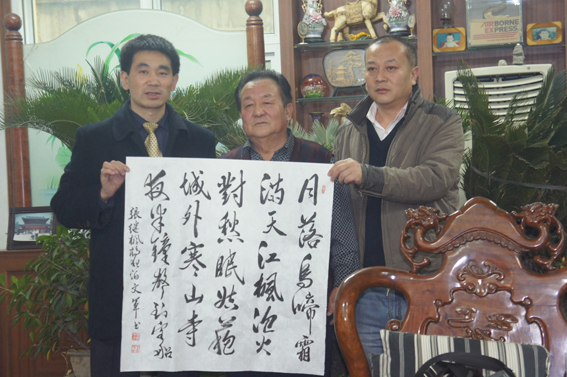 月落烏啼霜
满天江楓渔火
對愁眠姑蘇
城外寒山寺
夜半鐘聲到客船
張继楓橋夜泊文軍书
BORNE
EXPRESS